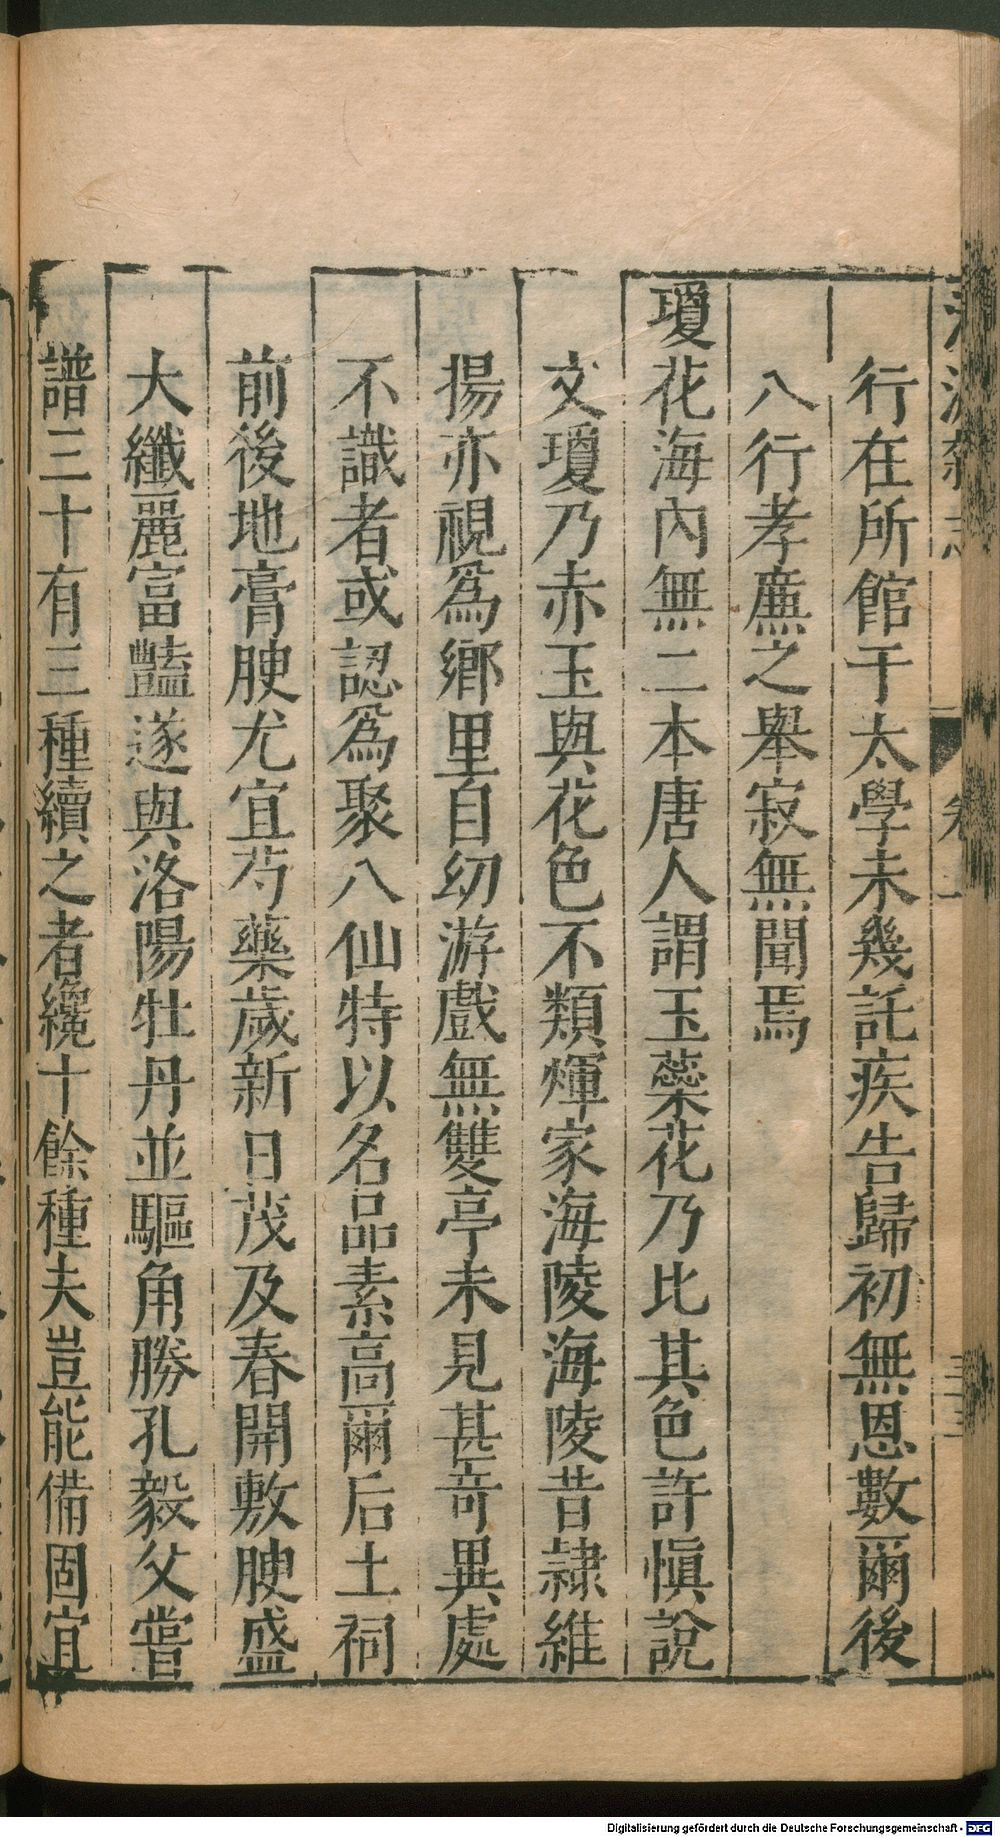 行在所館于太學未幾託疾告歸初無恩數爾後
八行孝廉之舉寂無聞焉
瓊花海內無二本唐人謂玉蘂花乃比其色許慎說
文瓊乃赤玉與花色不類煇家海陵海陵昔隸維
揚亦視爲鄉里自幼游戲無雙亭未見甚奇異處
不識者或認爲聚八仙特以名品素高爾后土祠
前後地膏腴尤宜芍藥歲新日茂及春開敷腴盛
大纖麗富豔遂與洛陽牡丹並驅角勝孔毅父嘗
譜三十有三種續之者纔十餘種夫豈能備固宜
Digitalisierung gefördert durch die Deutsche Forschungsgemeinschaft - DFG